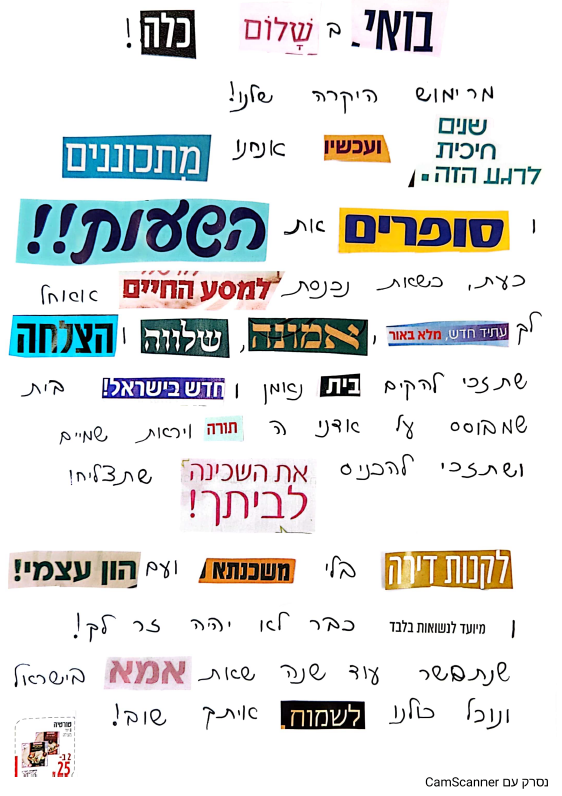 בואי ב שָׁלוֹם כלה!
מרימוש היקרה שלנו!
שנים חיכית לרגע הזה. ועכשיו אנחנו מתכוננים
ו סופרים את השעות!!
כעת, כשאת נכנסת למסע החיים אאחל
לך עתיד חדש, מלא באור, אמונה, שלווה ו הצלחה
שתזכי להקים בית נאמן ו חדש בישראל! בית
שמבוסס על אדני ה תורה ויראת שמיים
ושתזכי להכניס את השכינה לביתך! שתצליחו
לקנות דירה בלי משכנתא ועם הון עצמי!
ו מיועד לנשואות בלבד כבר לא יהיה זר לך!
שנתבשר עוד שנה שאת אמא בישראל
ונוכל כולנו לשמוח איתך שוב!
טורטיה
2 ב-
25
נסרק עם CamScanner